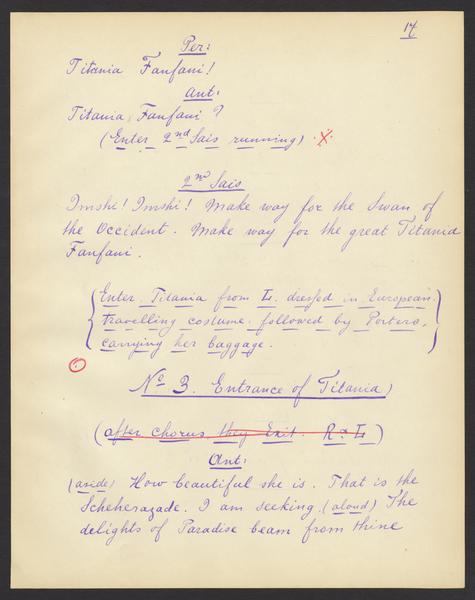 14
Per:
Titania Fanfani!
Ant:
Titania Fanfani?
(Enter 2nd Sais running) X.
2nd Sais
Imshi! Imshi! Make way for the Swan of
the Occident. Make way for the great Titania
Fanfani.
{Enter Titania from L. dressed in European
travelling costume followed by Porters,
carrying her baggage.}
No 3. Entrance of Titania)
(after chorus they Exit. R & L)
Ant:
(aside) How beautiful she is. That is the
Scheherazade. I am seeking. (aloud) The
delights of Paradise beam from thine